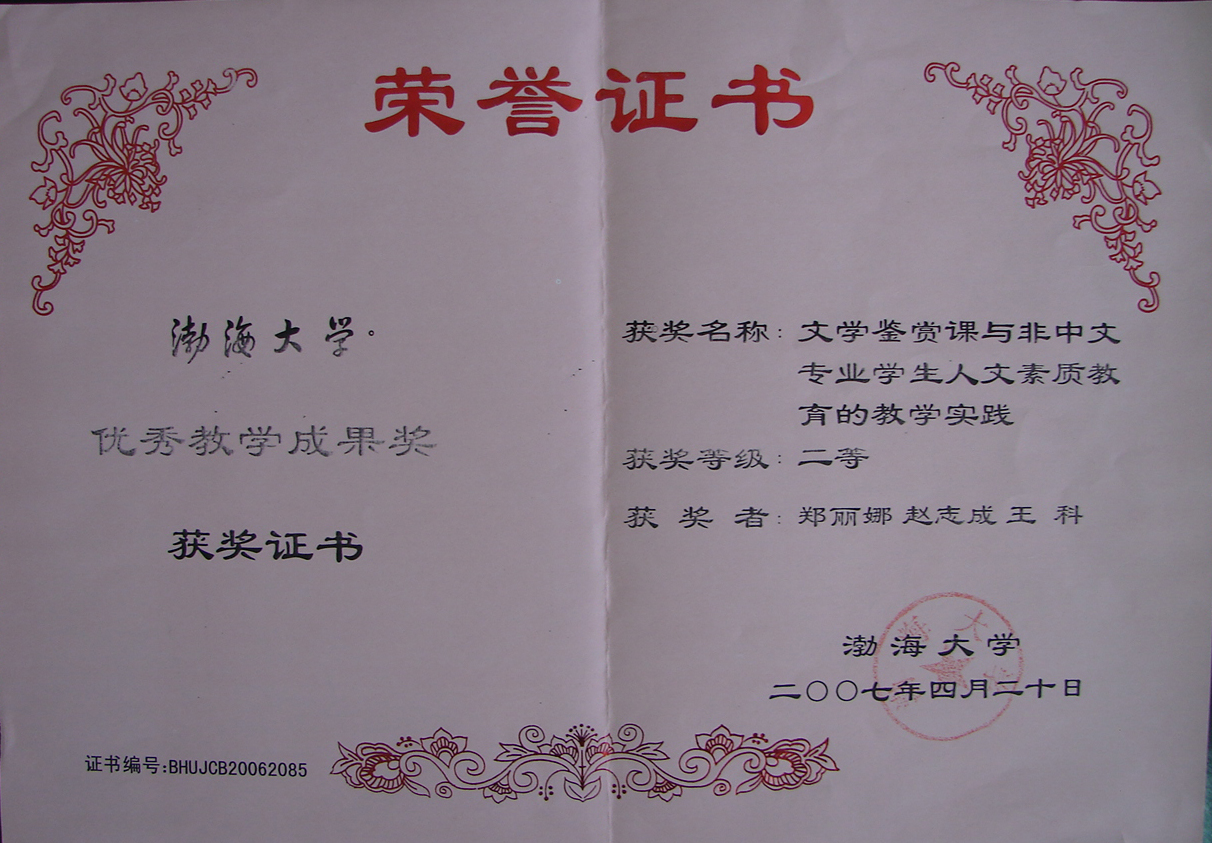 荣誉证书
渤海大学
优秀教学成果奖
获奖证书
证书编号:BHUJCB20062085
获奖名称:文学鉴赏课与非中文
专业学生人文素质教
育的教学实践
获奖等级:二等
获 奖 者:郑丽娜 赵志成 王 科
渤海大学
二〇〇七年四月二十日